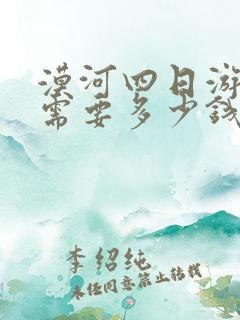 漠河四日游
需要多少钱
李绍纯
未经同意禁止转载